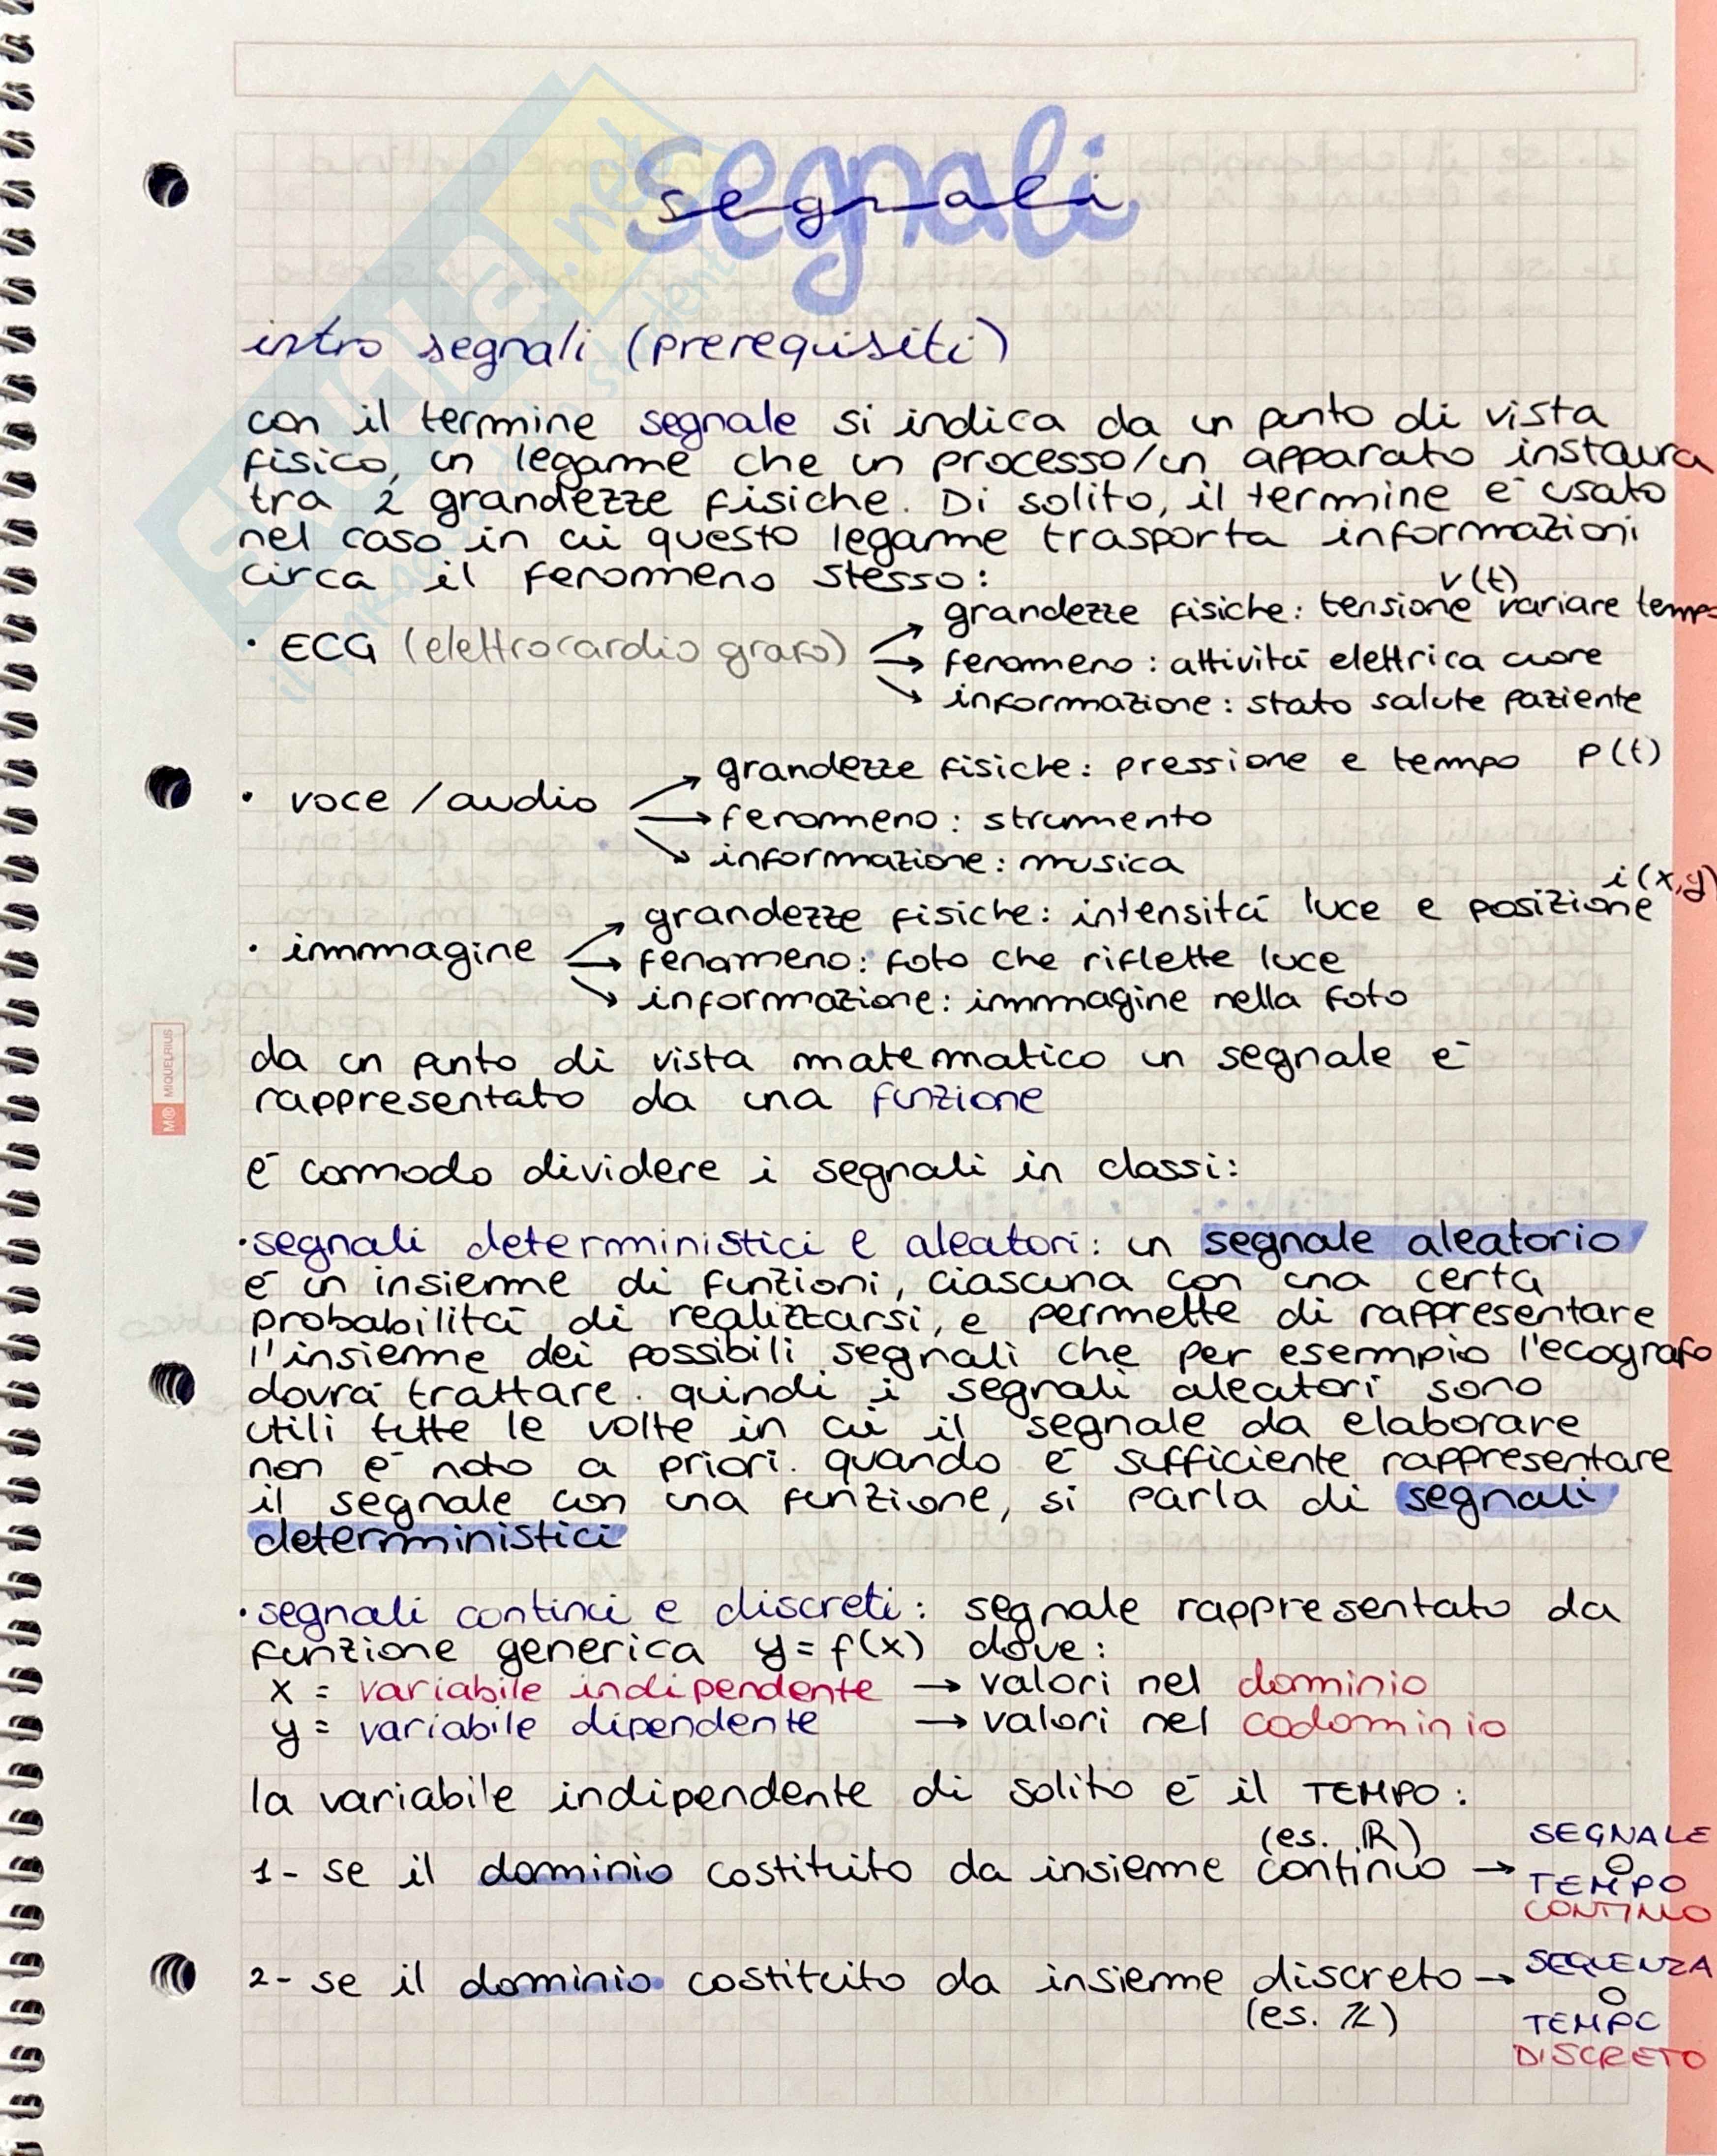 segnali
intro segnali (prerequisiti)
con il termine segnale si indica da un punto di vista
fisico, un legame che un processo/un apparato instaura
tra 2 grandezze fisiche. Di solito, il termine è usato
nel caso in cui questo legame trasporta informazioni
circa il fenomeno stesso:
v(t)
grandezze fisiche: tensione variare tempo
• ECG (elettrocardiografo)
→ fenomeno: attività elettrica cuore
informazione: stato salute paziente
grandezze fisiche: pressione e tempo p(t)
• voce/audio
→ fenomeno: strumento
informazione: musica
i(x,y)
grandezze fisiche: intensità luce e posizione
• immagine
→ fenomeno: foto che riflette luce
informazione: immagine nella foto
da un punto di vista matematico un segnale è
rappresentato da una funzione
è comodo dividere i segnali in classi:
•segnali deterministici e aleatori: un segnale aleatorio
è un insieme di funzioni, ciascuna con una certa
probabilità di realizzarsi, e permette di rappresentare
l'insieme dei possibili segnali che per esempio l'ecografo
dovrà trattare. quindi i segnali aleatori sono
utili tutte le volte in cui il segnale da elaborare
non è noto a priori. quando è sufficiente rappresentare
il segnale con una funzione, si parla di segnali
deterministici
•segnali continui e discreti: segnale rappresentato da
funzione generica y=f(x) dove:
x = variabile indipendente → valori nel dominio
y = variabile dipendente → valori nel codominio
la variabile indipendente di solito è il TEMPO:
(es. ℝ)
1- se il dominio costituito da insieme continuo → SEGNALE
O
TEMPO
CONTINUO
2- se il dominio costituito da insieme discreto → SEQUENZA
(es. ℤ)
O
TEMPO
DISCRETO
MIQUELRIUS
skuola.net